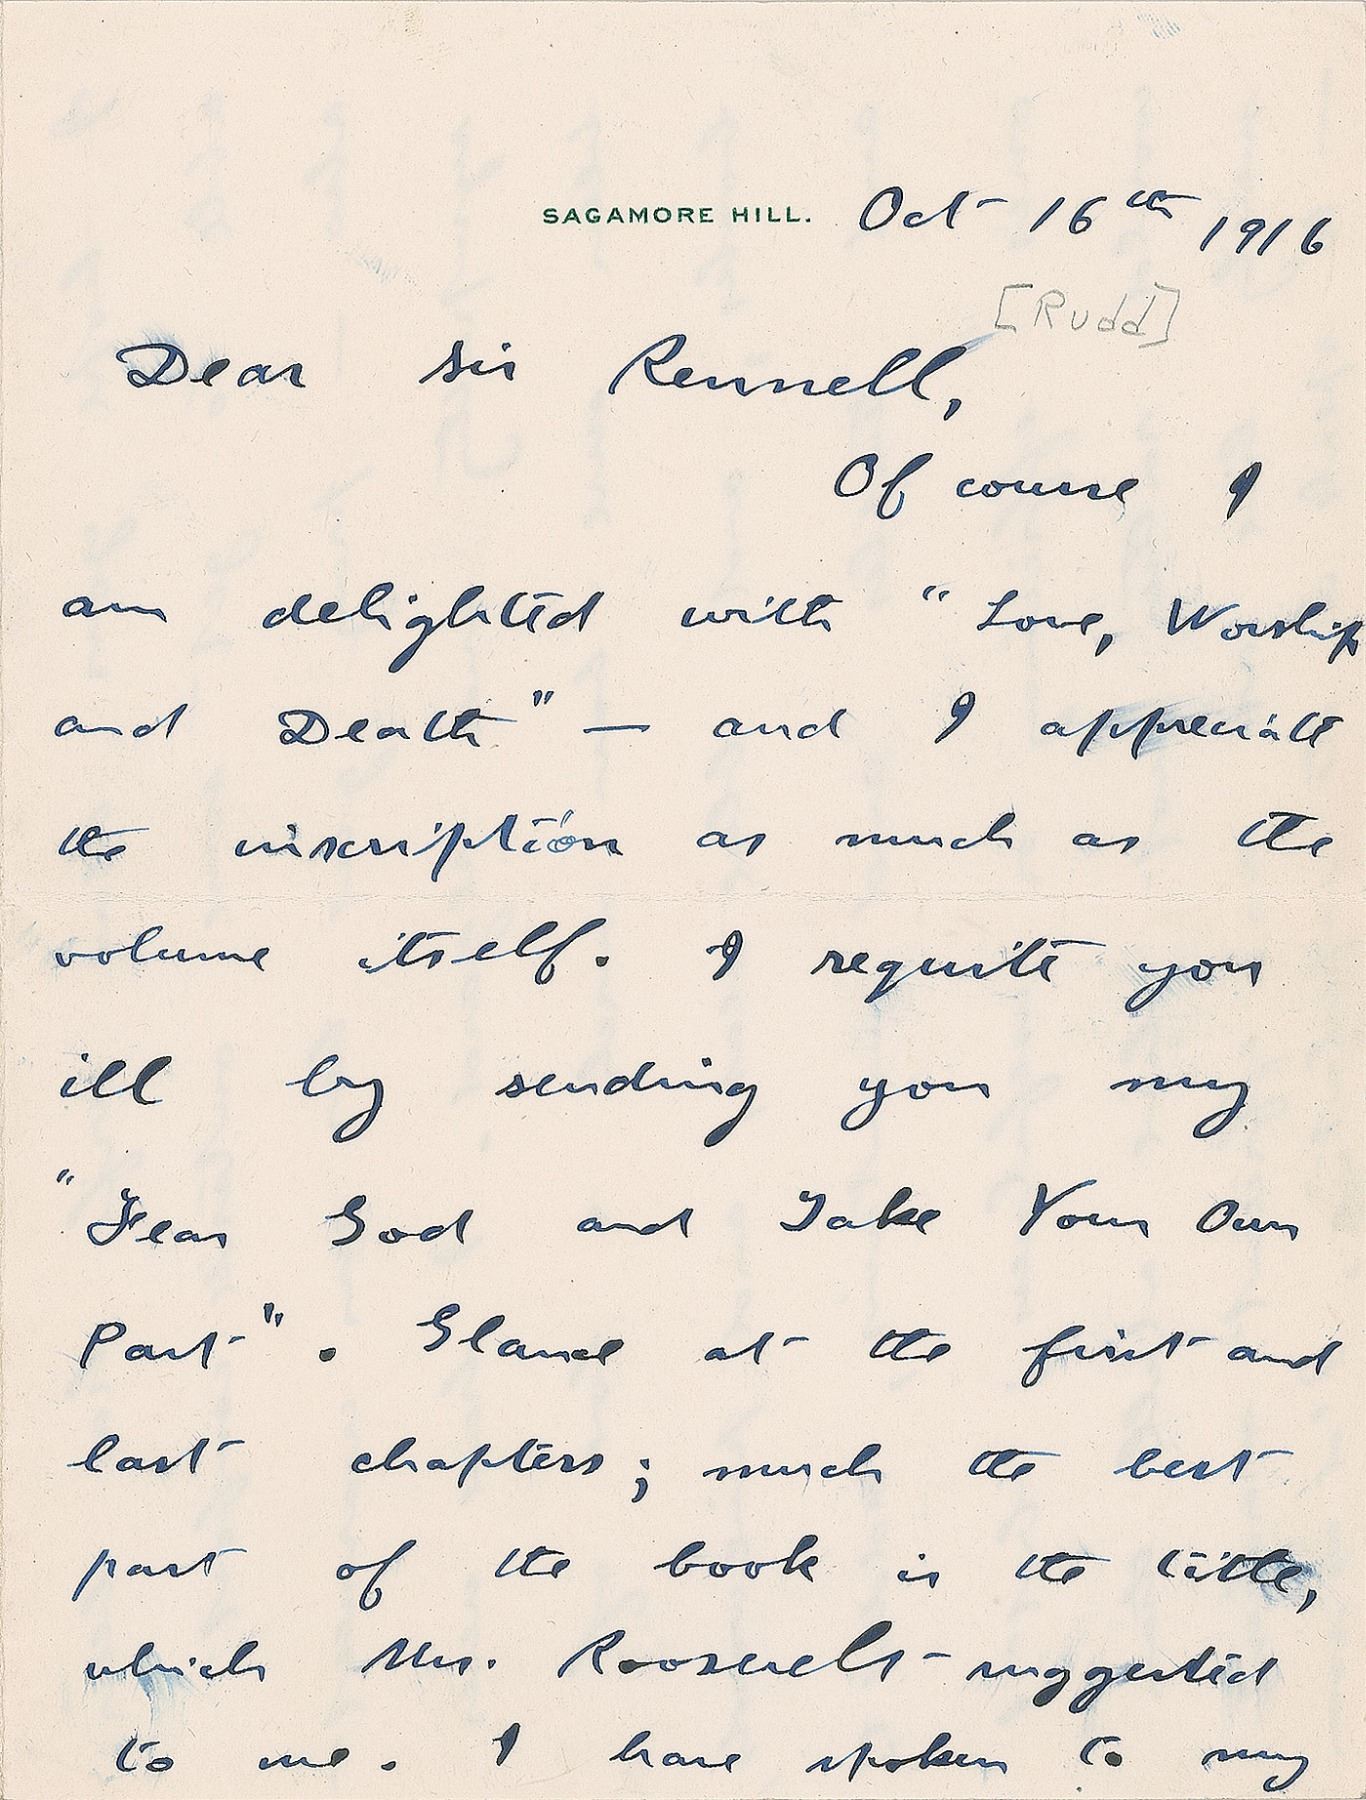 SAGAMORE HILL. Oct 16th 1916
[Rudd]
Dear Sir Rennell,
Of course I
am delighted with "Love, Worship
and Death" — and I appreciate
the inscription as much as the
volume itself. I requite you
ill by sending you my
"Fear God and Take Your Own
Part". Glance at the first and
last chapters; much the best
part of the book is the title,
which Mrs. Roosevelt suggested
to me. I have spoken to my